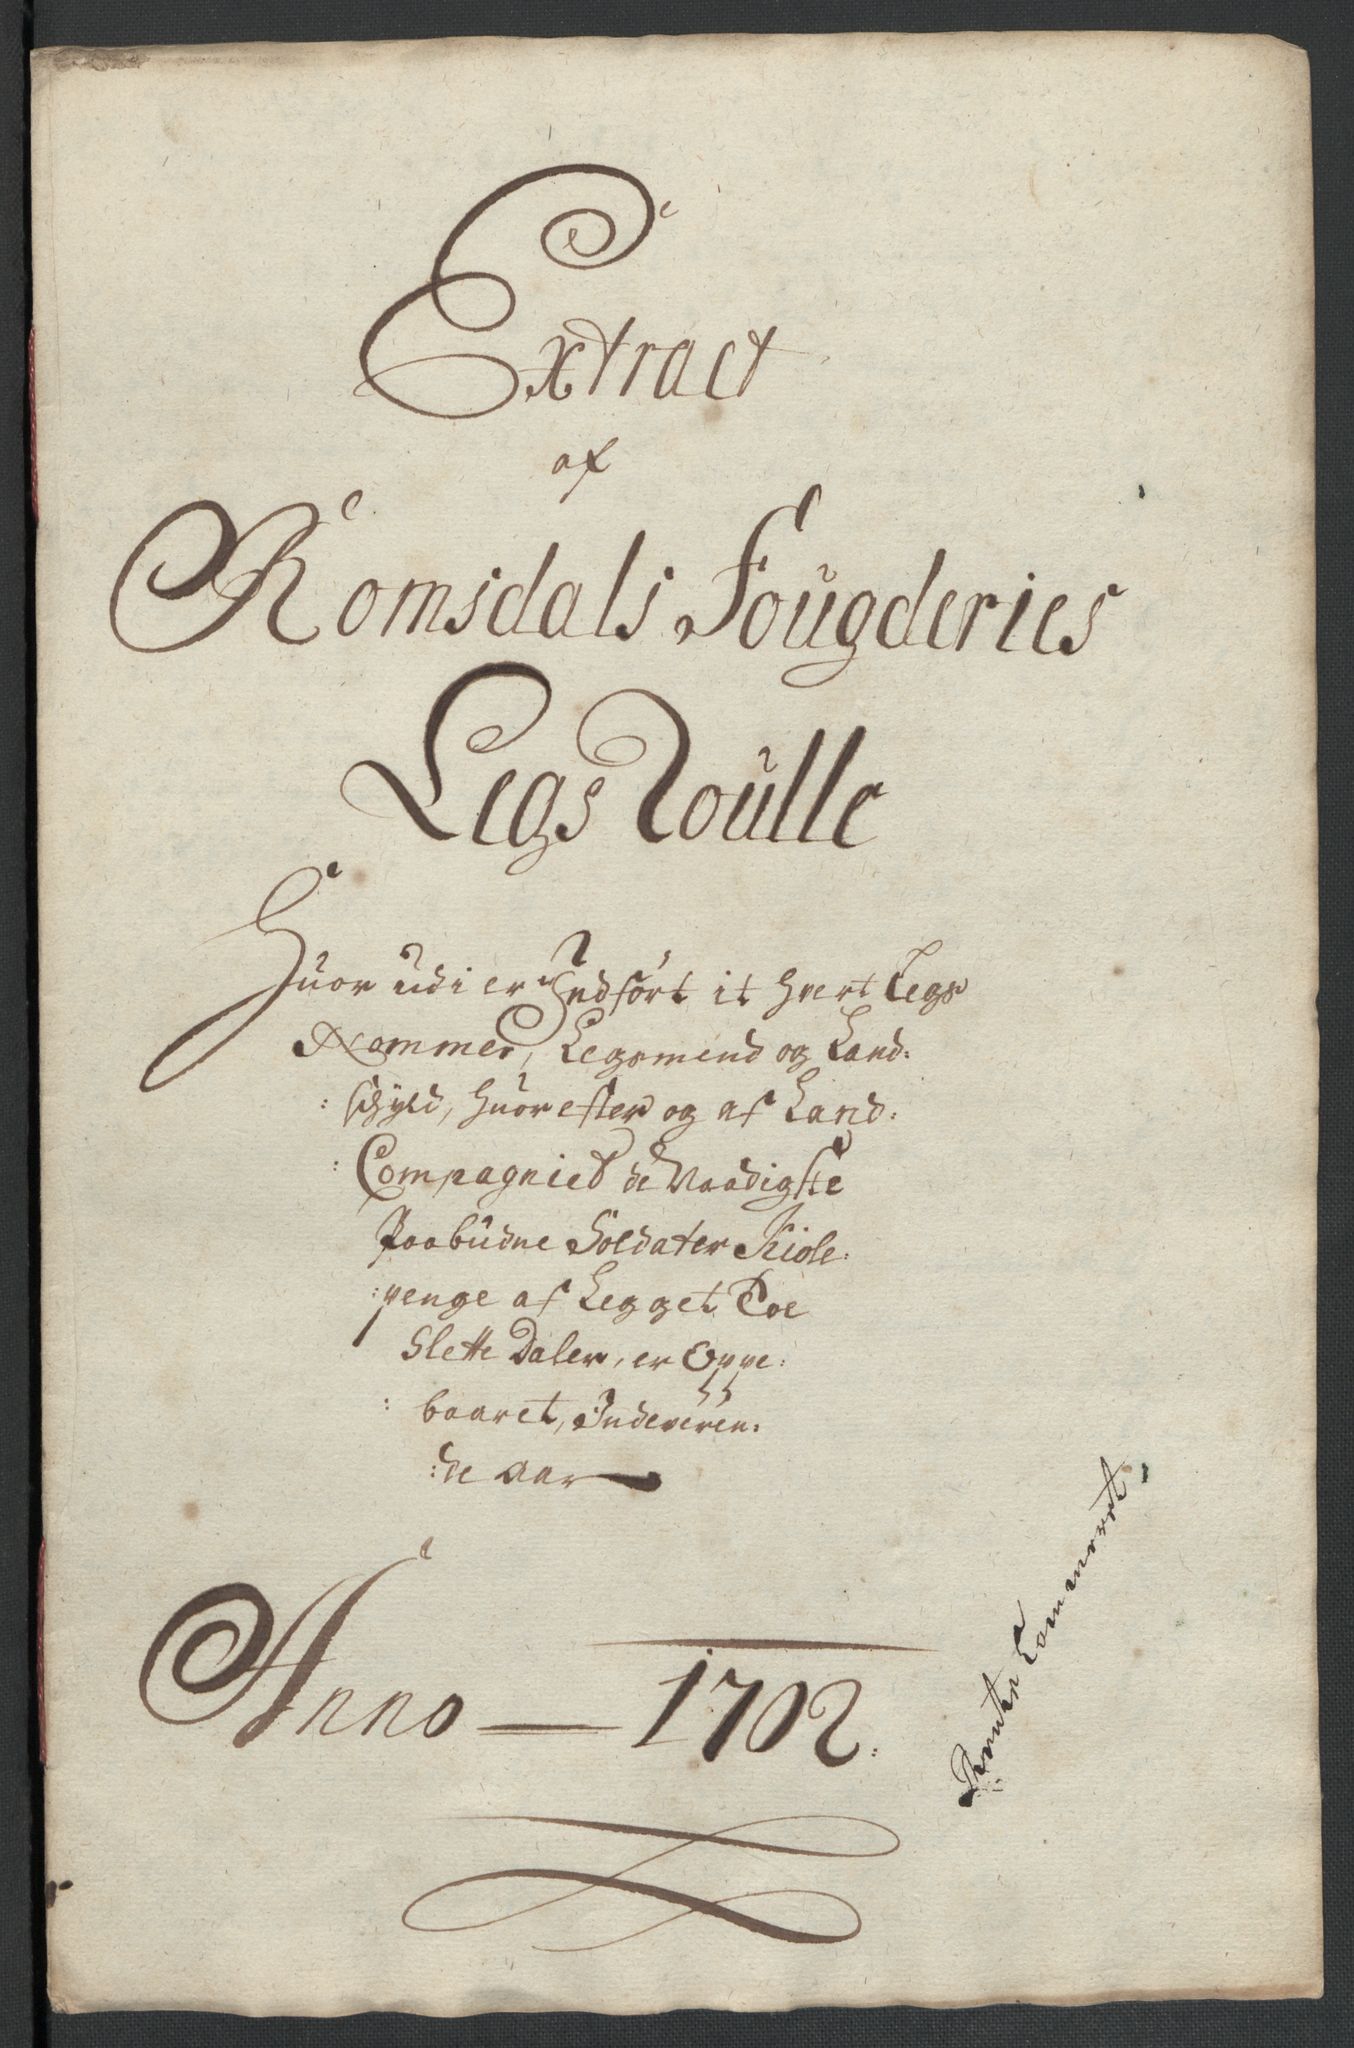 Extract
af
Romsdals Fougderies
Legs Roulle
Huor udi er Indført it hvert Legs
Nommer, Legsmend og Land:
: schyld, huorefter og af Land:
: Compagniet de Naadigste
Paabudne Soldater Kiole:
:penge af Legget Toe
Slette Daler, er Oppe:
: baaret, Indeværen:
:de Aar
Anno — 1702.
Rente Cammeret.